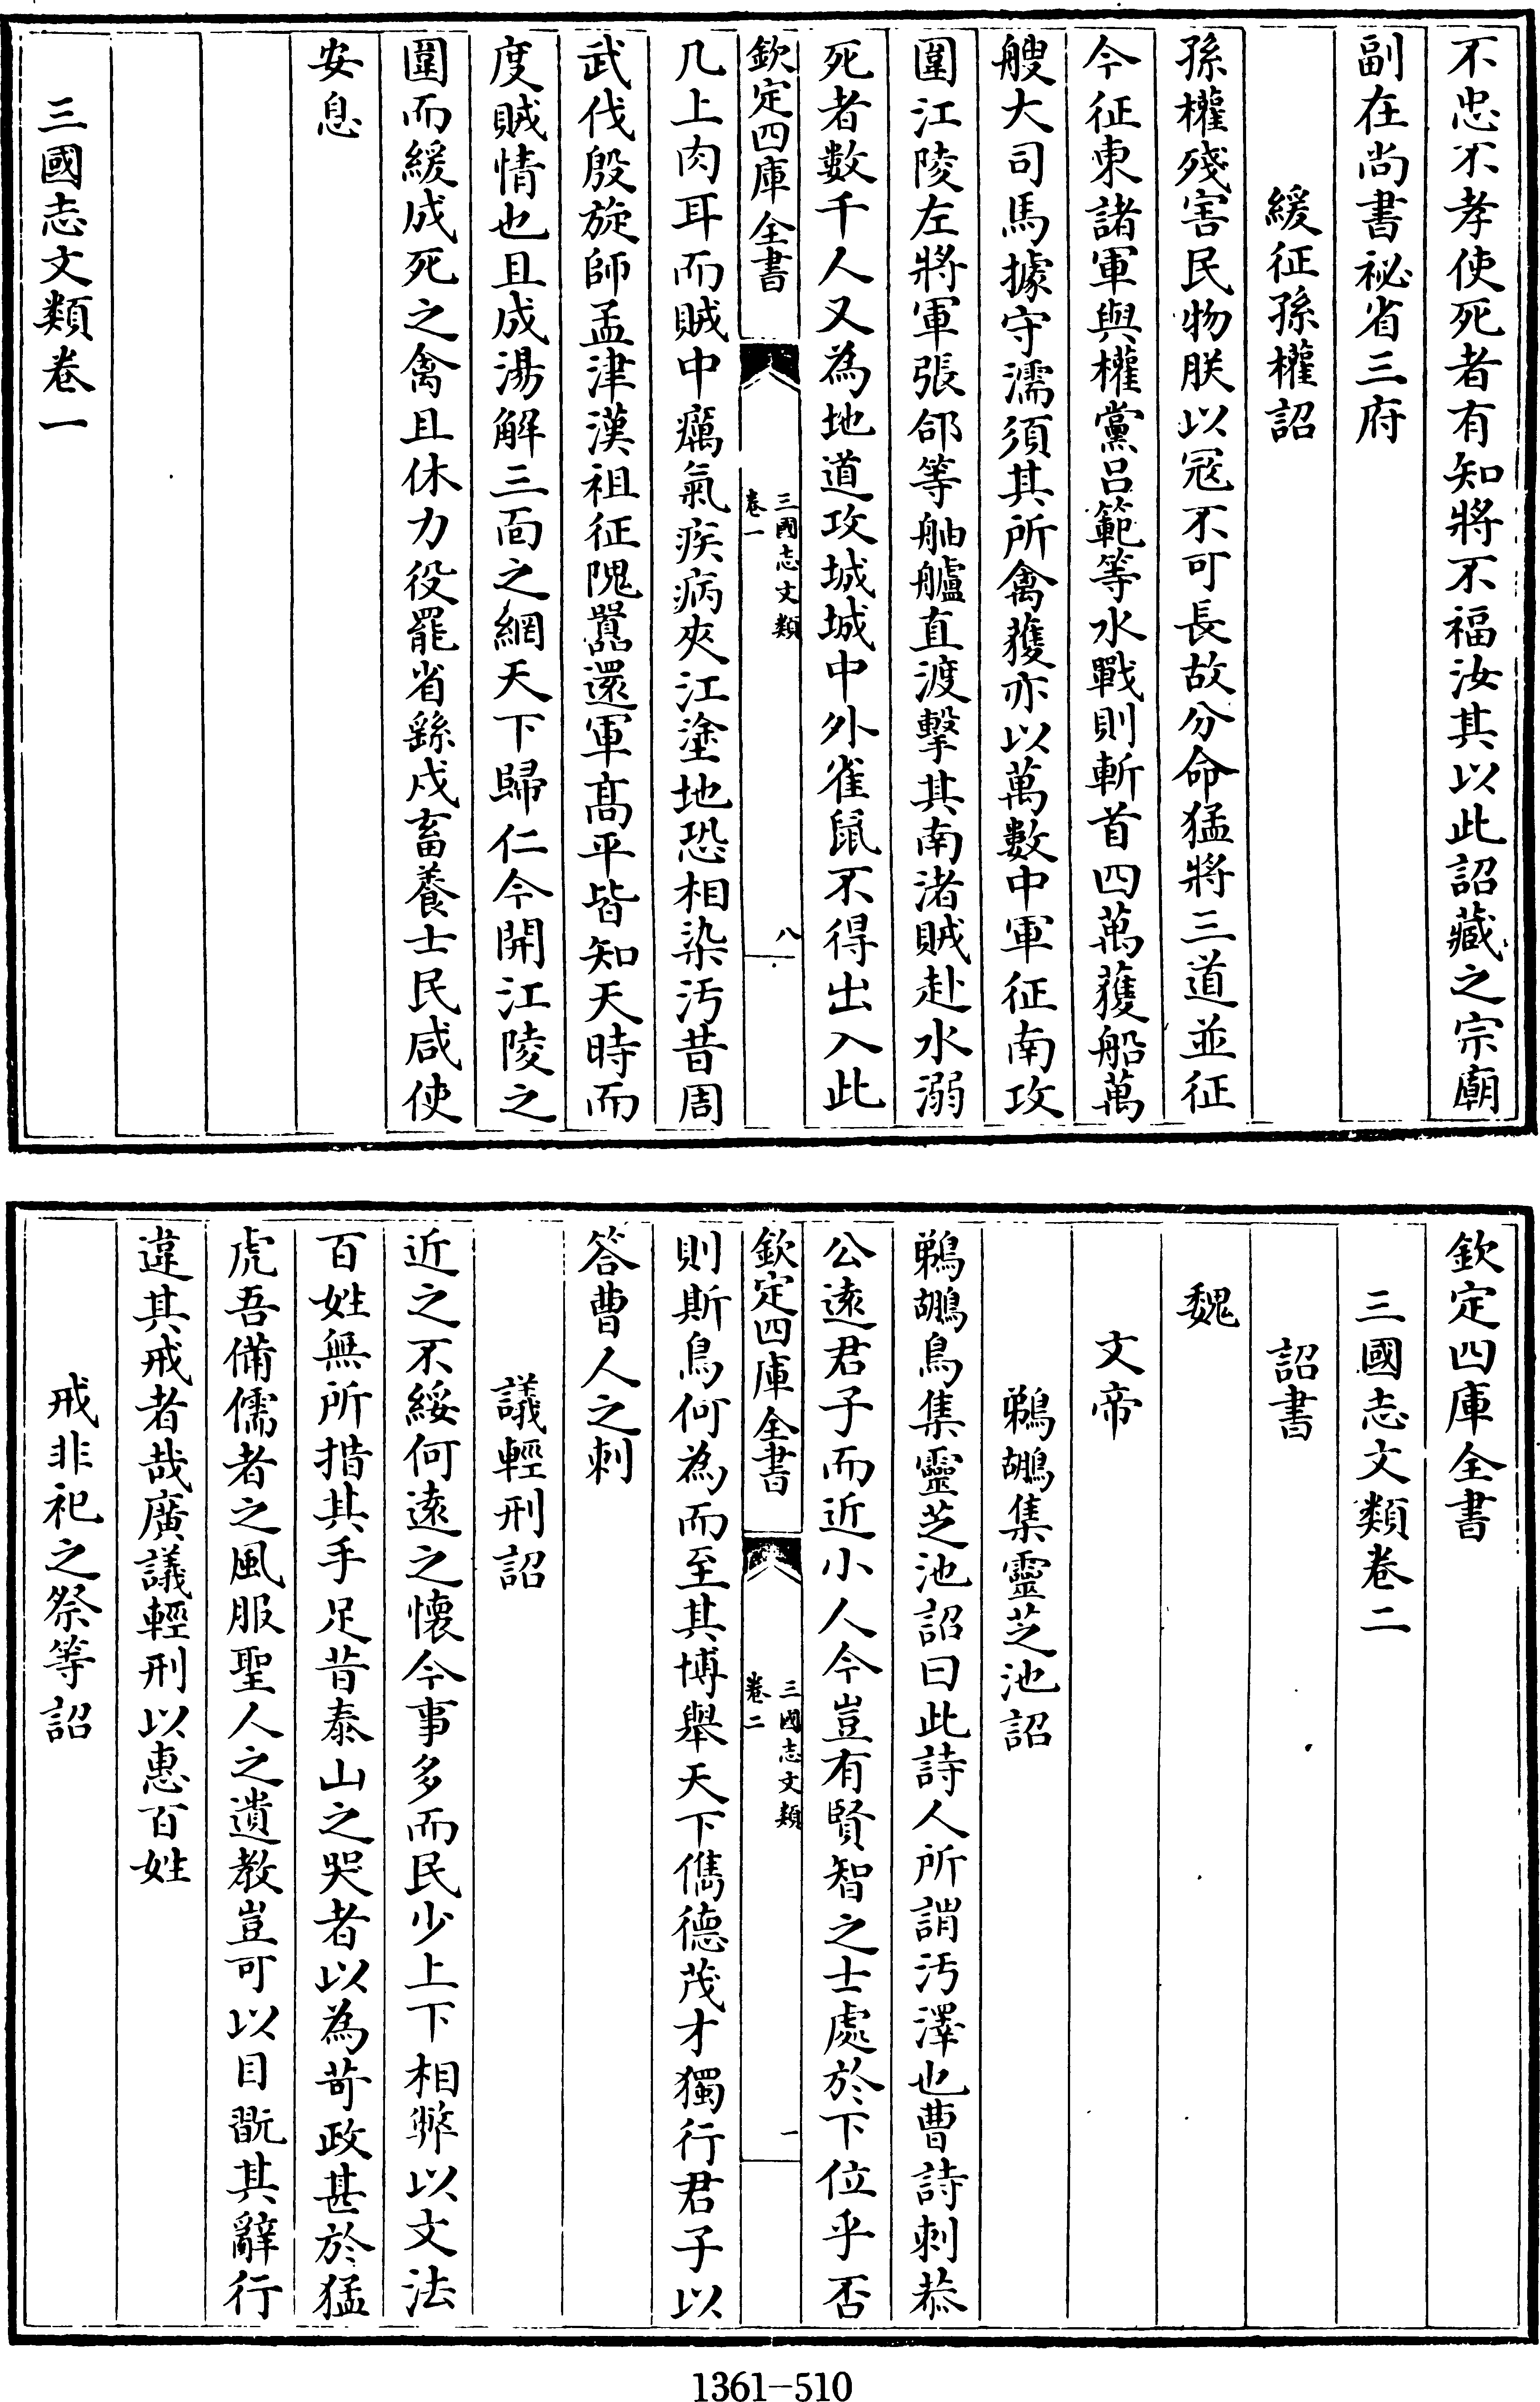 不忠不孝使死者有知將不福汝其以此詔藏之宗廟
副在尚書祕省三府
緩征孫權詔
孫權殘害民物朕以冦不可長故分命猛將三道並征
今征東諸軍與權黨吕範等水戰則斬首四萬獲船萬
艘大司馬據守濡須其所禽獲亦以萬數中軍征南攻
圍江陵左將軍張郃等舳艫直渡擊其南渚賊赴水溺
死者數千人又為地道攻城城中外雀鼠不得出入此
欽定四庫全書
三國志文類
卷一
八
几上肉耳而賊中癘氣疾病夾江塗地恐相染汚昔周
武伐殷旋師孟津漢祖征隗囂還軍髙平皆知天時而
度賊情也且成湯解三面之網天下歸仁今開江陵之
圍而緩成死之禽且休力役罷省繇戍畜養士民咸使
安息
三國志文類卷一
欽定四庫全書
三國志文類卷二
詔書
魏
文帝
鵜鶘集靈芝池詔
鵜鶘鳥集靈芝池詔曰此詩人所謂汚澤也曹詩刺恭
公逺君子而近小人今豈有賢智之士處於下位乎否
欽定四庫全書
三國志文類
卷二
一
則斯鳥何為而至其博舉天下儁德茂才獨行君子以
答曹人之刺
議輕刑詔
近之不綏何逺之懷今事多而民少上下相弊以文法
百姓無所措其手足昔泰山之哭者以為苛政甚於猛
虎吾備儒者之風服聖人之遺教豈可以目翫其辭行
違其戒者哉廣議輕刑以惠百姓
戒非祀之祭等詔
1361-510